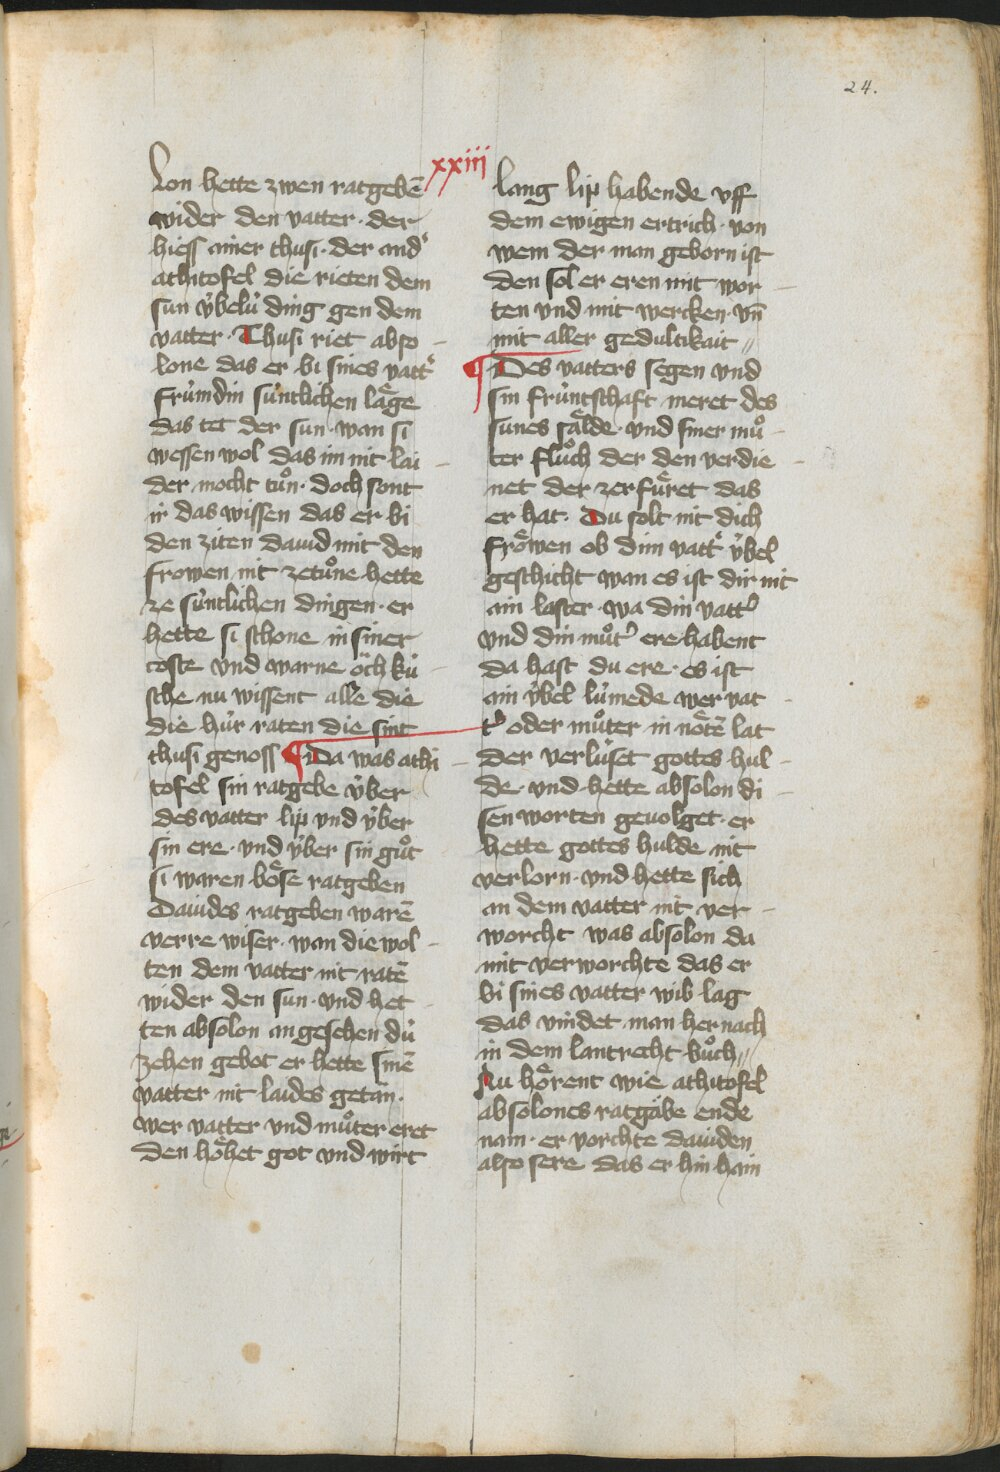 24.
xxiii
lon hette zwen ratgebē
wider den vatter · der
hiess ainer thusi · der and͛
athitofel die rieten dem
sun v̈belu̍ ding gen dem
vatter · Thusi riet abso-
lone das er bi sines vatt͛
fru̍mdin su̍ntlichen läge
das tet der sun · wan si
wessen wol das im nit lai-
der mocht tuͦn · doch sont
ir das wissen das er bi
den ziten dauid mit den
frowen nit zetuͦne hette
ze su̍ntlichen dingen · er
hette si schone in siner
coste vnd warne öch ku̍-
sche nu wissent alle die
die hu̍r raten die sint
thusi genoss ¶ Da was athi-
tofel sin ratgebe v̈ber
des vatter lip vnd v̈ber
sin ere · vnd v̈ber sin guͦt
si waren böse ratgeben
Dauides ratgeben warē
verre wiser · wan die wol-
ten dem vatter nit ratē
wider den sun · vnd het-
ten absolon angesehen du̍
zehen gebot er hette sinē
vatter nit laides getan ·
wer vatter vnd muͦter eret
den höhet got vnd wirt
lang lip habende vff
dem ewigen ertrich · von
wem der man geborn ist
den sol er eren mit wor-
ten vnd mit wercken · vn̄
mit aller gedultikait //
¶ Des vatters segen vnd
sin fru̍ntschaft meret des
sunes sälde · vnd siner muͦ-
ter fluͦch der den verdie-
net der zerfu̍ret das
er hat · Du solt nit dich
fröwen ob dim vatt͛ v̈bel
geschicht wan es ist dir nit
ain laster · wa din vatt͛
vnd din muͦt͛ ere habent
da hast du ere · es ist
ain v̈bel lu̍mede wer vat-
t͛ oder muͦter in nötē lat
der verlu̍set gottes hul-
de · vnd hette absolon di-
sen worten geuolget · er
hette gottes hulde nit
verlorn · vnd hette sich
an dem vatter nit ver-
worcht was absolon da
mit verworchte das er
bi sines vatter wib lag
das vindet man her nach
in dem lantrecht buͦch //
Nu hörent wie athitofel
absolones ratgäbe ende
nam · er vorchte dauiden
also sere das er hin hain